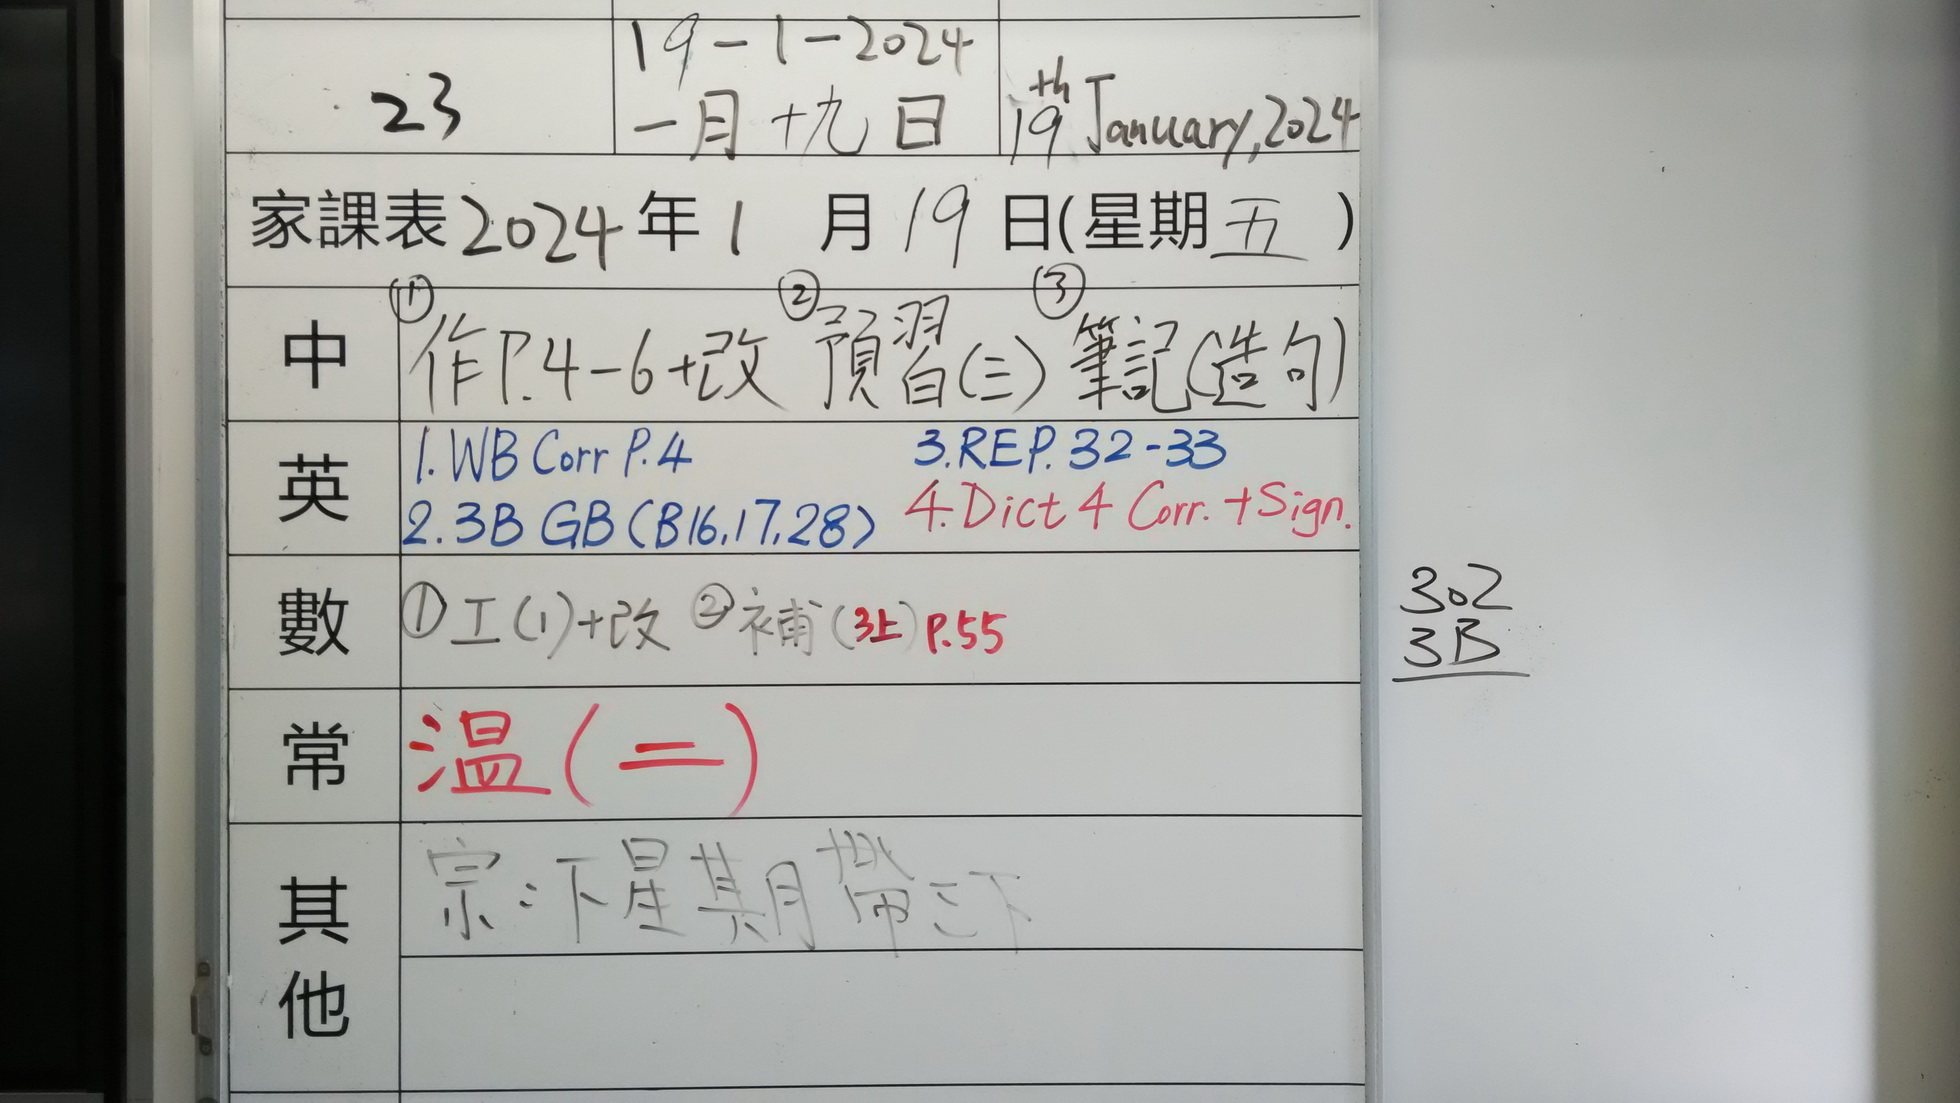 19-1-2024
23 一月十九日 19th January, 2024
家課表2024年1月19日(星期五)
中 ①作P.4-6+改 ②預習(三) ③筆記(造句)
英 1. WB Corr P.4 3. REP. 32-33
2. 3B GB (B16,17,28) 4. Dict 4 Corr. + Sign.
數 ①工(1)+改 ②補(3上)P.55
302
3B
常 温(二)
其他 宗:下星期帶三下